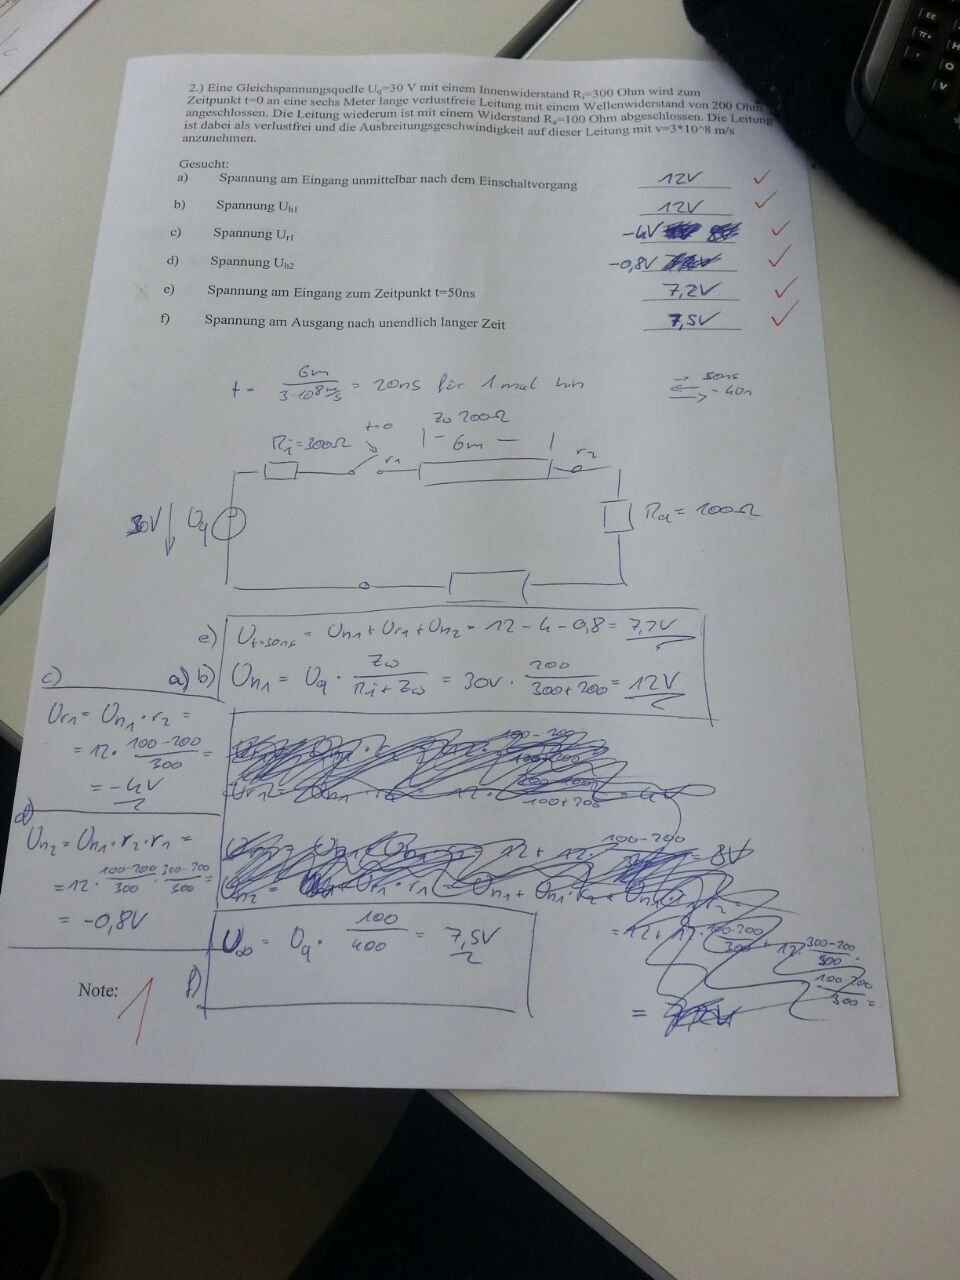 2.) Eine Gleichspannungsquelle Uq=30 V mit einem Innenwiderstand Ri=300 Ohm wird zum
Zeitpunkt t=0 an eine sechs Meter lange verlustfreie Leitung mit einem Wellenwiderstand von 200 Ohm
angeschlossen. Die Leitung wiederum ist mit einem Widerstand Ra=100 Ohm abgeschlossen. Die Leitung
ist dabei als verlustfrei und die Ausbreitungsgeschwindigkeit auf dieser Leitung mit v=3*10^8 m/s
anzunehmen.
Gesucht:
a) Spannung am Eingang unmittelbar nach dem Einschaltvorgang 12V ✓
b) Spannung Uh1 12V ✓
c) Spannung Ur1 -4V ✓
d) Spannung Uh2 -0,8V ✓
e) Spannung am Eingang zum Zeitpunkt t=50ns 7,2V ✓
f) Spannung am Ausgang nach unendlich langer Zeit 7,5V ✓
t = 6m / 3·10^8 m/s = 20ns für 1 mal hin
50ns
Zw 200Ω
t=0
Ri=300Ω r1 6m r2
30V Uq Ra = 100Ω
e) Ut=50ns = Uh1 + Ur1 + Uh2 = 12 - 4 - 0,8 = 7,2V
a) b) Uh1 = Uq · Zw / Ri + Zw = 30V · 200 / 300+200 = 12V
c)
Ur1 = Uh1 · r2 =
= 12 · 100-200 / 300 =
= -4V
d)
Uh2 = Uh1 · r2 · r1 =
= 12 · 100-200 / 300 · 300-200 / 500 =
= -0,8V
f) U∞ = Uq · 100 / 400 = 7,5V
Note: 1